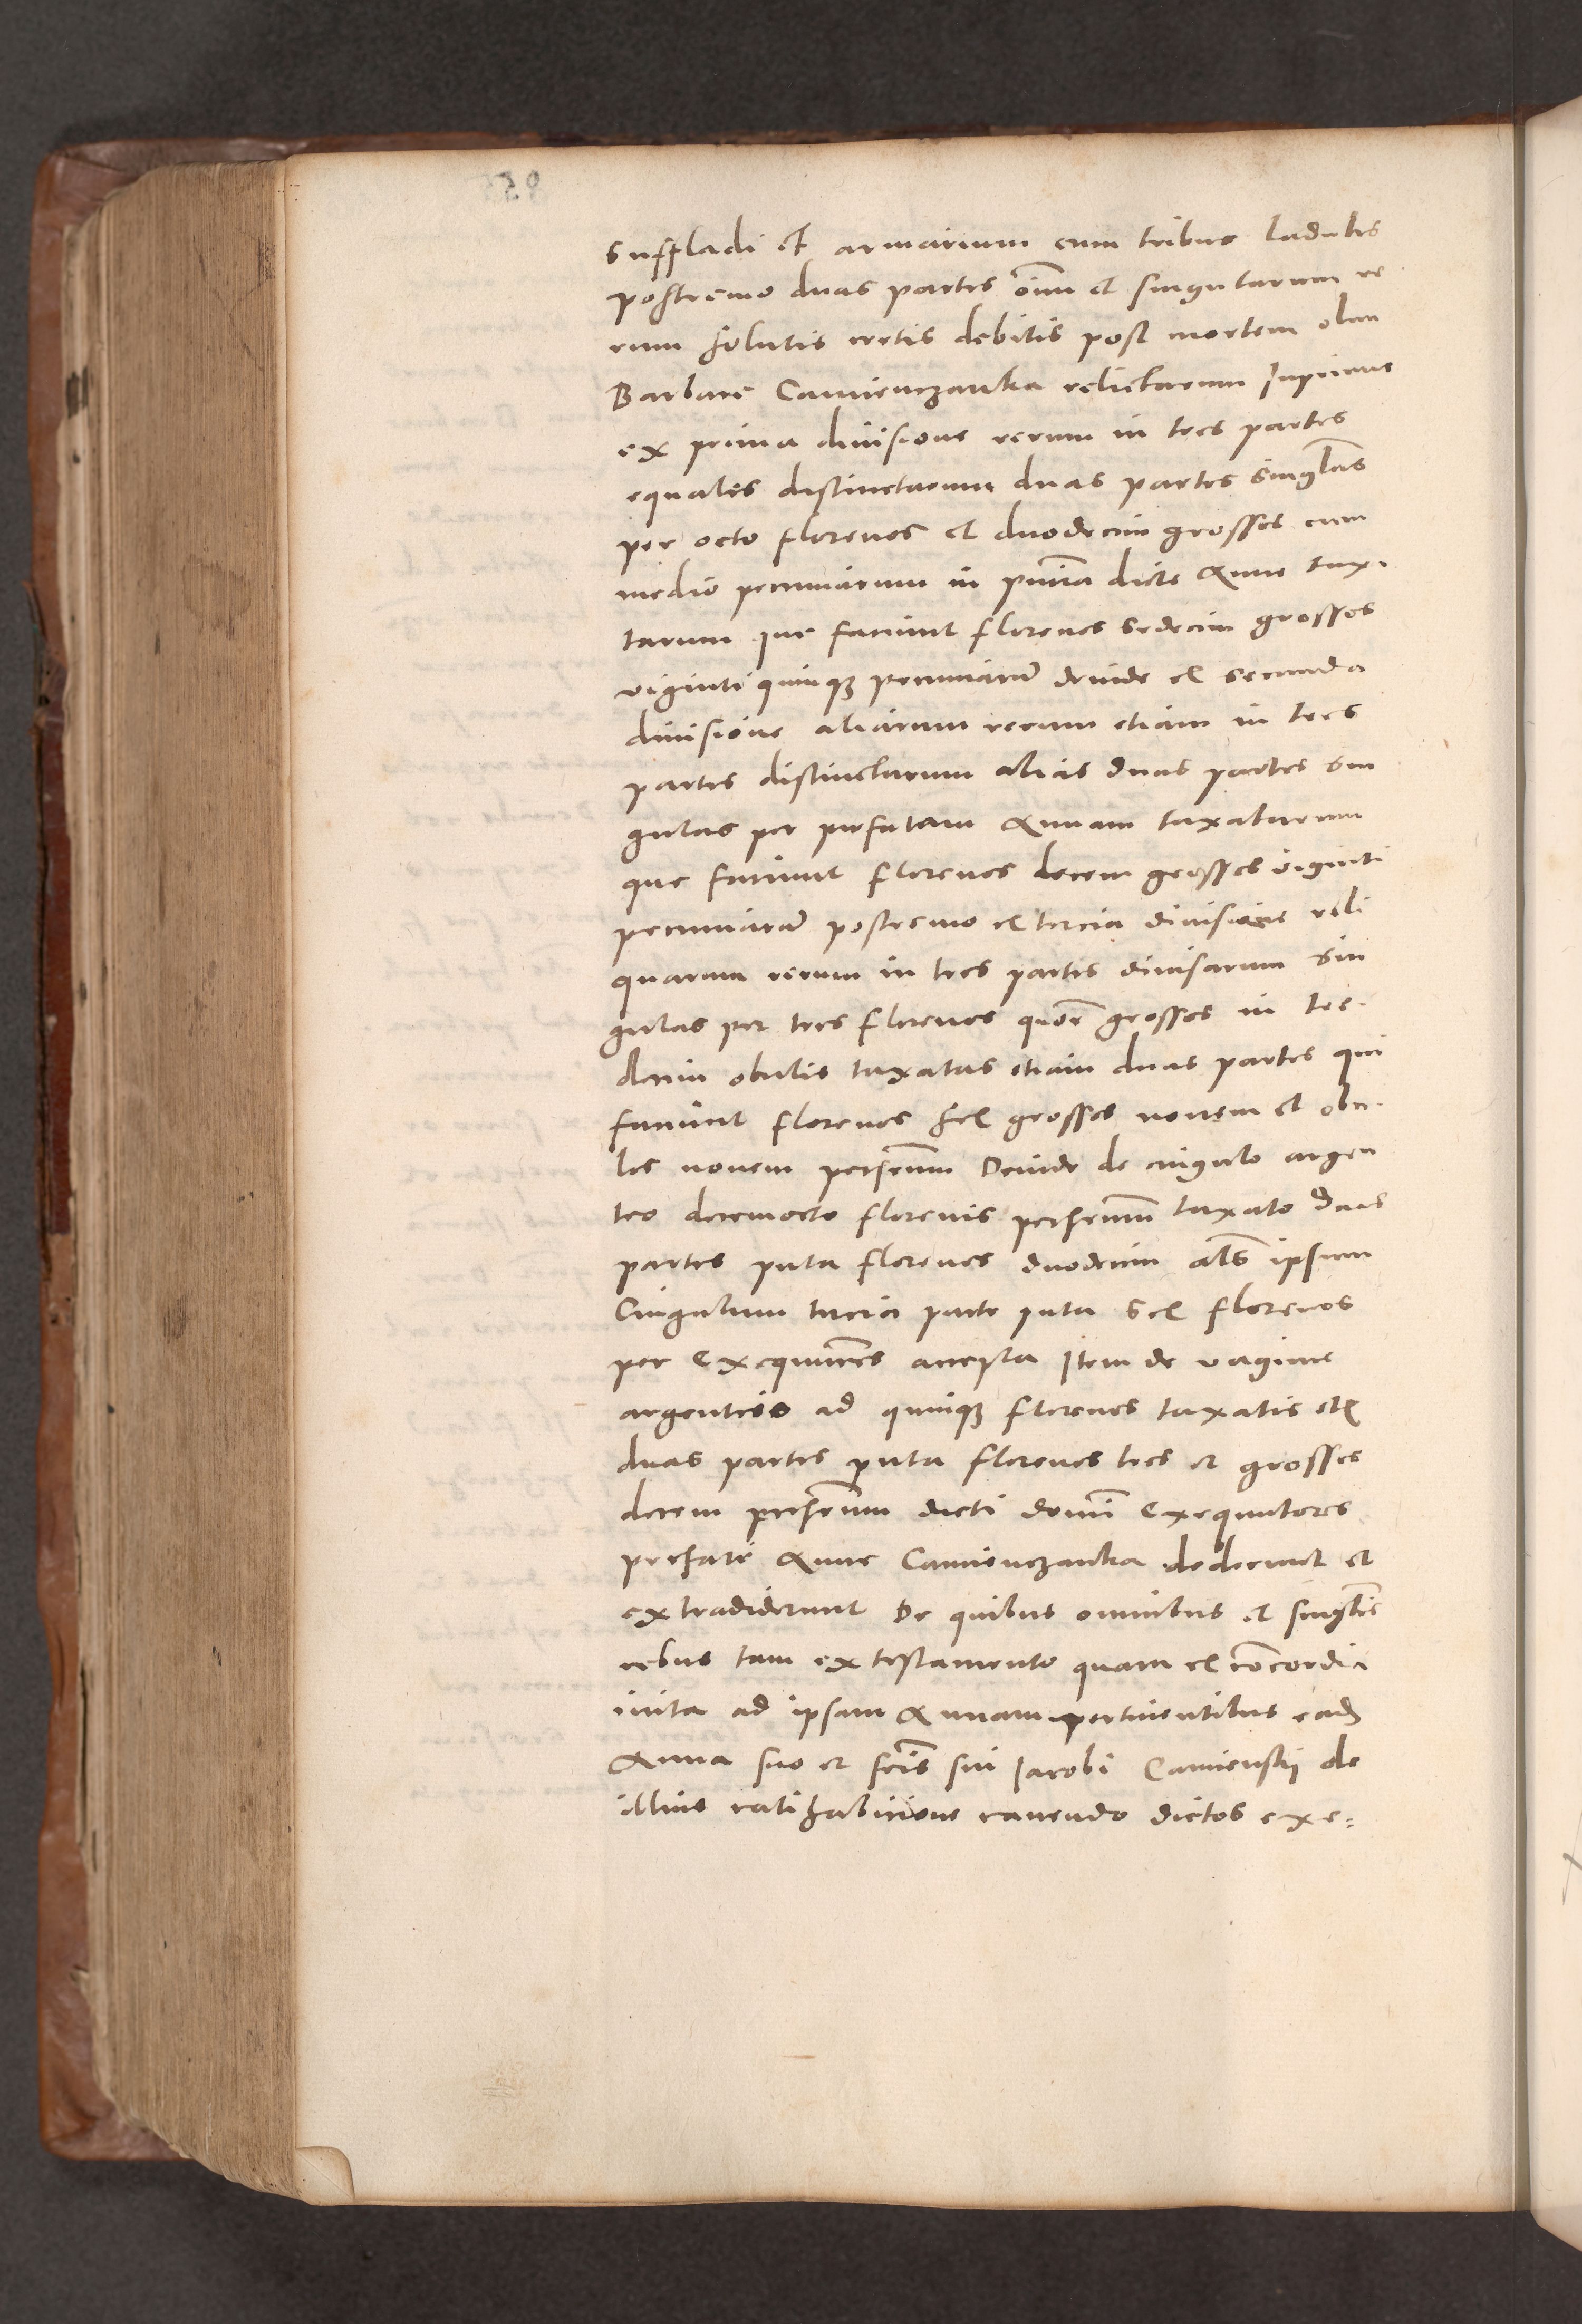 suffladi et armarium cum tribus ladulis
postremo duas partes oim et singularum re
rum solutis certis debitis post mortem olim
Barbare Camienczanka relictarum Inprimis
ex prima divisione rerum in tres partes
equales distinctarum duas partes singlas
per octo florenos et duodecim grossos cum
medio pecuniarum in pntia dicte Anne tax-
tarum que faciunt florenos sedecim grossos
viginti quinqz pecuniarum deinde ex secunda
divisione aliarum rerum etiam in tres
partes distinctarum alias duas partes sin
gulas per prefatam Annam taxatarum
que faciunt florenos decem grossos viginti
pecuniarum postremo ex tercia divisione reli
quarum rerum in tres partes divisarum sin
gulas per tres florenos grossos in tre-
decim obulis taxatas etiam duas partes qui
faciunt florenos sex grossos novem et obu-
los novem Deinde de cingulo argen
teo decemocto florenis taxato duas
partes puta florenos duodecim als ipsum
Cingulum tercia parte puta sex florenos
per Exequutores accepta Item de vagine
argenteis ad quinqz florenos taxatis etc
duas partes puta florenos tres et grossos
decem dicti domini Exequutores
prefate Anne Camienczanka dederunt et
extradiderunt De quibus omnibus et singlis
rebus tam ex testamento quam ex concordia
inita ad ipsam Annam pertinentibus eadem
Anna suo et fris sui Jacobi Camienskij de
illius ratihabicione cavendo dictos exe=